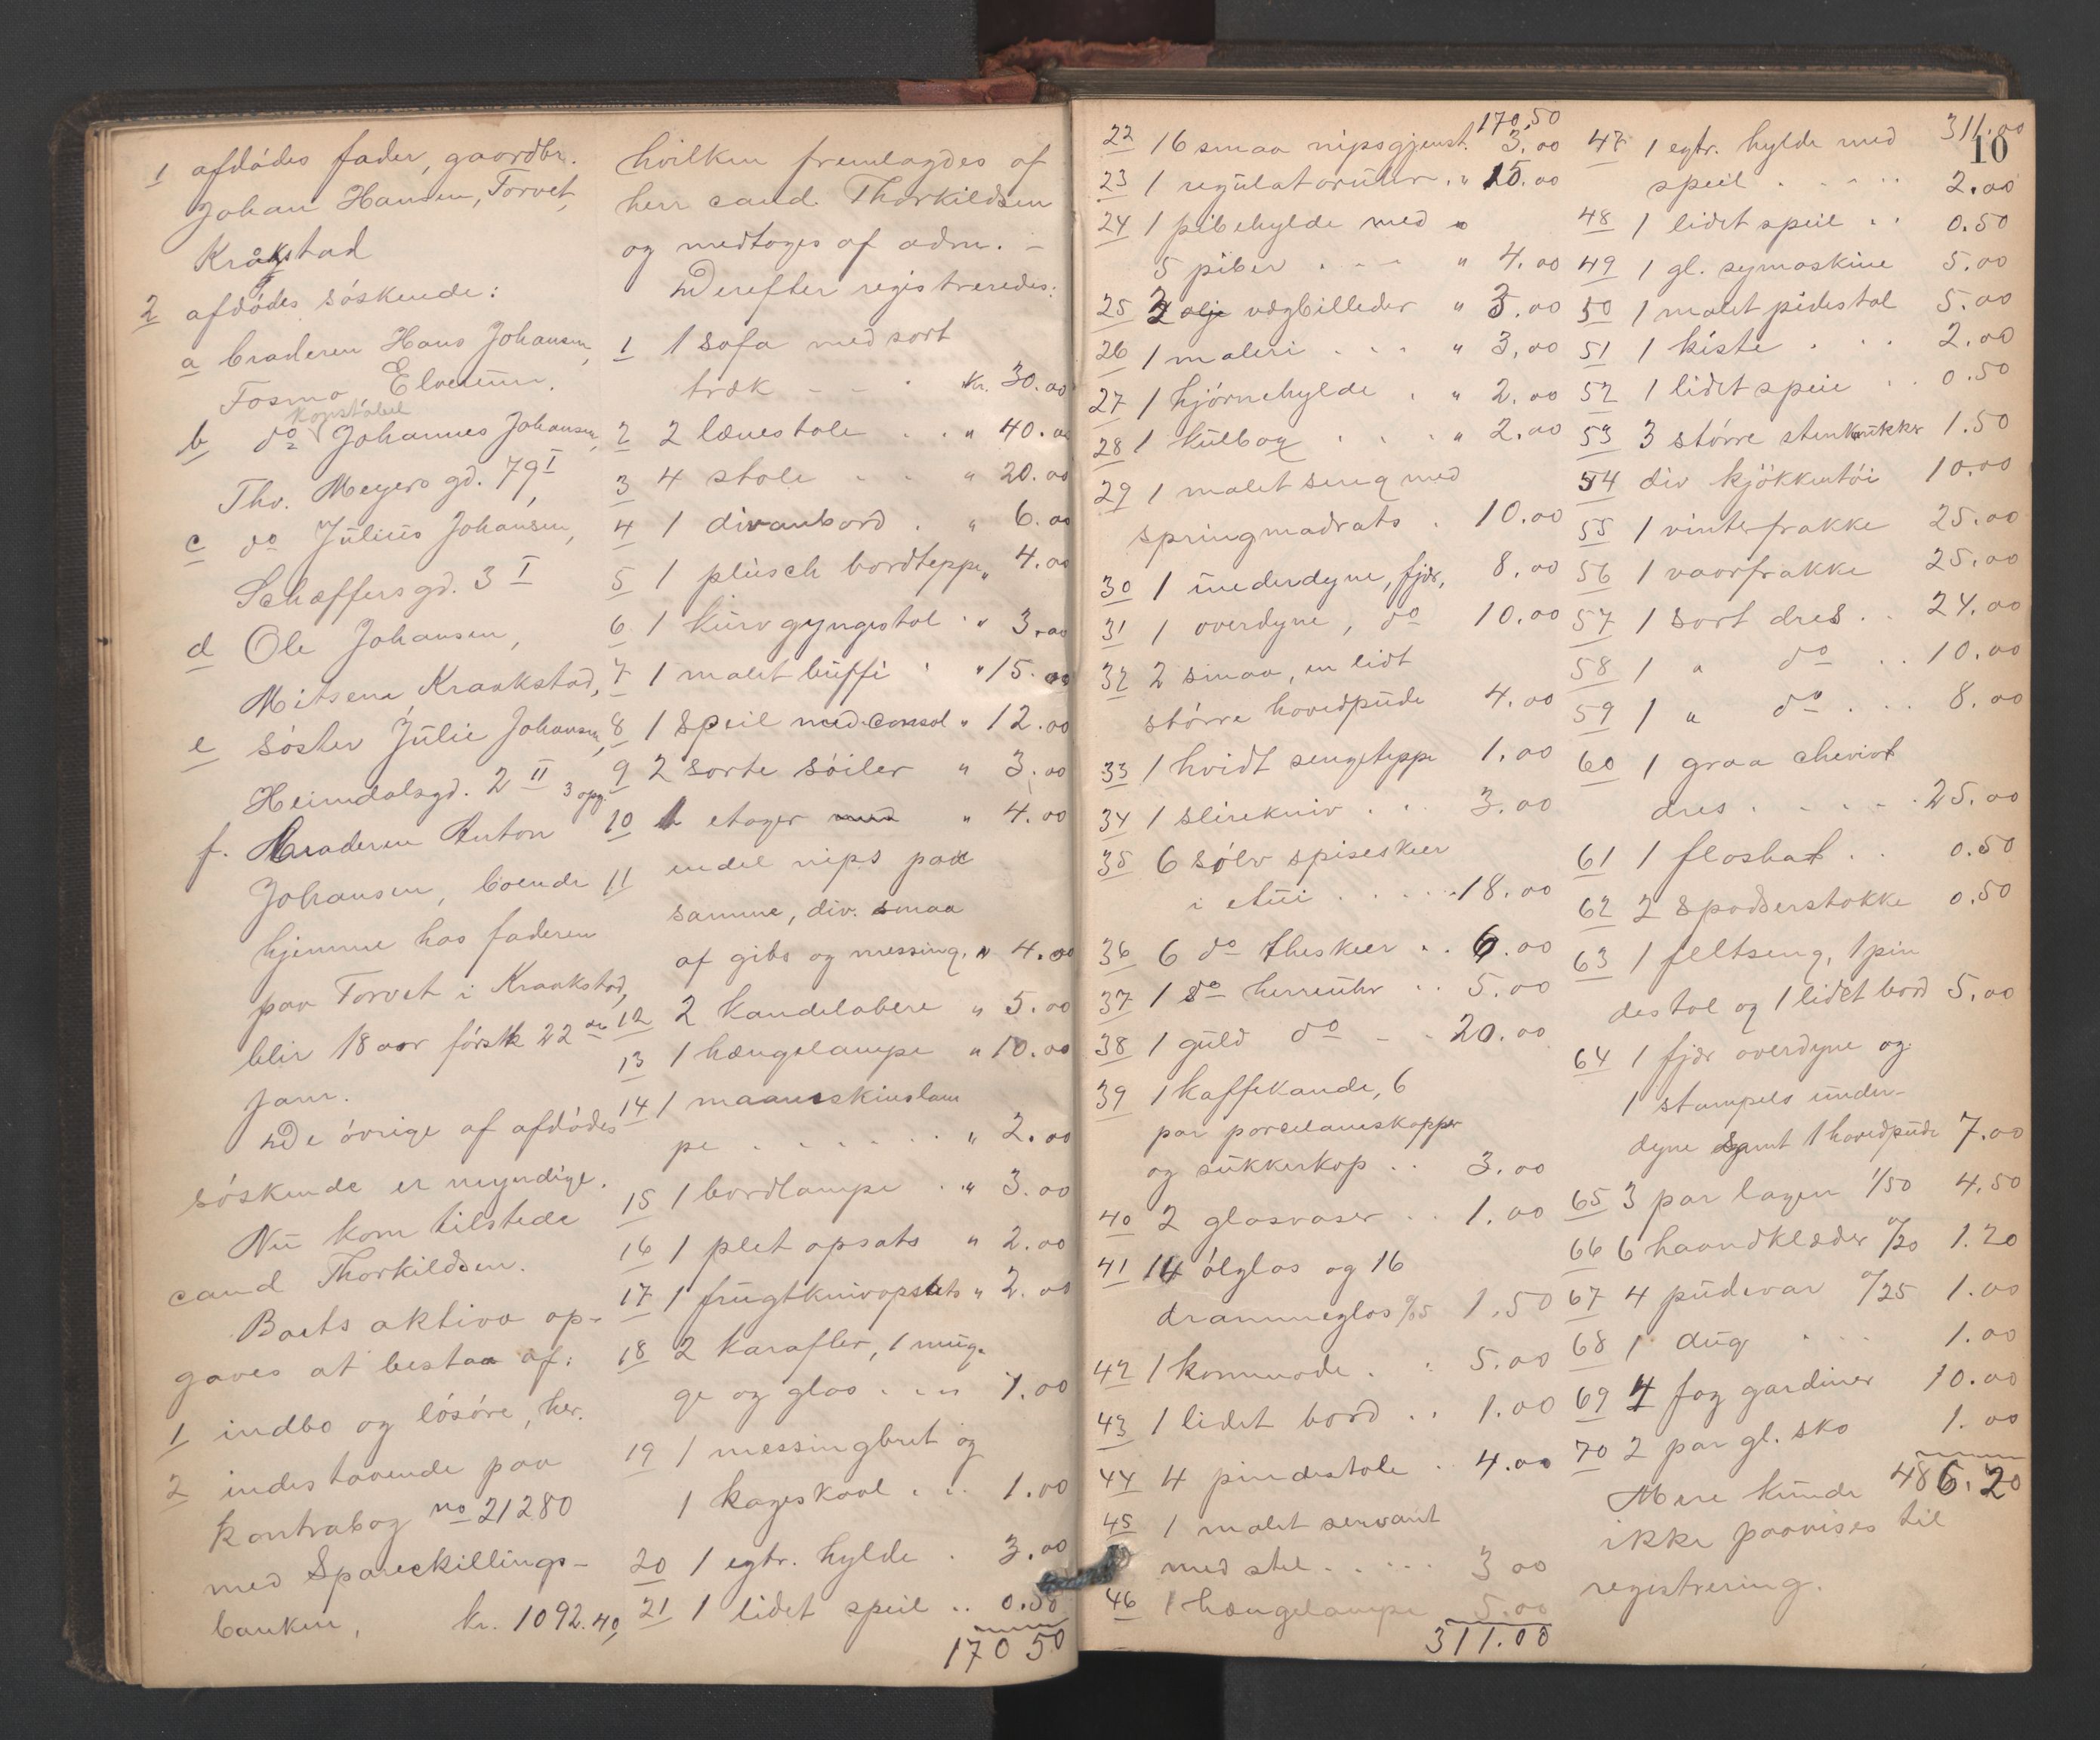 1 afdödes fader, gaardbr.
Johan Hansen, Torvet,
Kråkstad
2 afdödes söskende:
a broderen Hans Johansen,
Fosmo Elverum.
konstabel
b do Johannes Johansen,
Thv. Meyers gd. 79 I,
c do Julius Johansen,
Schæffersgd. 3 I
d Ole Johansen,
Mitsem, Kraakstad,
e söster Julie Johansen,
Heimdalsgd. 2 II 3 opg.
f. Broderen Anton
Johansen, boende
hjemme hos faderen
paa Torvet i Kraakstad,
blir 18 aar först 22 de
janr.
De övrige af afdödes
söskende er myndige.
Nu kom tilstede
cand Thorkildsen.
Boets aktiva op-
gaves at bestaa af:
1 indbo og lösöre, her.
2 indestaaende paa
kontrabog no 21280
med Spareskillings-
banken, kr. 1092.40
hvilken fremlagdes af
herr cand. Thorkildsen
og medtoges af adm. -
Derefter registreredes:
1 1 sofa med sort
træk - - . kr. 30.00
2 2 lænestole . . " 40.00
3 4 stole . . " 20.00
4 1 divanbord . " 6.00
5 1 plüsch bordteppe " 4.00
6 1 kurvgyngestol . " 3.00
7 1 malet büffé . " 15.00
8 1 speil med consol " 12.00
9 2 sorte söiler " 3.00
10 1 etager med " 4.00
11 endel nips paa
samme, div. smaa
af gibs og messing. " 4.00
12 2 kandelabere " 5.00
13 1 hængelampe " 10.00
14 1 maaneskinslam
pe . . . . . . " 2.00
15 1 bordlampe . " 3.00
16 1 plet opsats " 2.00
17 1 frugtknivopsats " 2.00
18 2 karafler, 1 mug-
ge og glas . . . . 1.00
19 1 messingbret og
1 kageskaal . . . 1.00
20 1 egtr. hylde . 3.00
21 1 lidet speil . . 0.50
170 50
170,50
22 16 smaa nipsgjenst. 3.00
23 1 regulatoruhr . " 15.00
24 1 pibehylde med
5 piber . . . . " 4.00
25 2 olje vægbilleder " 3.00
26 1 maleri . . . " 3.00
27 1 hjörnehylde . " 2.00
28 1 kulbox . . . " 2.00
29 1 malet seng med
springmadrats . 10.00
30 1 underdyne, fjær, 8.00
31 1 overdyne, do 10.00
32 2 smaa, en lidt
större hovedpude 4.00
33 1 hvidt sengeteppe 1.00
34 1 slirekniv . . . 3.00
35 6 sölv spiseskeer
i etui . . . . . 18.00
36 6 do theskeer . . 6.00
37 1 do herreuhr . . 5.00
38 1 guld do - - 20.00
39 1 kaffekande, 6
par porcelaneskopper
og sukkerkop . . 3.00
40 2 glasvaser . . 1.00
41 14 ölglas og 16
drammeglas o/o5 1.50
42 1 kommode . . 5.00
43 1 lidet bord . . 1.00
44 4 pindestole . 4.00
45 1 malet servant
med stel . . . . 3 00
46 1 hængelampe 5.00
311.00
311.00
10
47 1 egtr. hylde med
speil . . . . . 2.00
48 1 lidet speil . . 0.50
49 1 gl. symaskine 5.00
50 1 malet pidestal 5.00
51 1 kiste . . . 2.00
52 1 lidet speil . . 0.50
53 3 större stenkrukker 1.50
54 div kjökkentöi 10.00
55 1 vinterfrakke 25.00
56 1 vaarfrakke 25.00
57 1 sort dres . . 24.00
58 1 " do . . 10.00
59 1 " do . . . 8.00
60 1 graa cheviot
dres . . . . . 25.00
61 1 floshat . . 0.50
62 2 spadserstokke 0.50
63 1 feltseng, 1 pin
destol og 1 lidet bord 5.00
64 1 fjær overdyne og
1 stampels under-
dyne samt 1 hovedpude 7.00
65 3 par lagen 1/50 4.50
66 6 haandklæder o/20 1.20
67 4 pudevar o/25 1.00
68 1 dug . . . 1.00
69 4 fag gardiner 10.00
70 2 par gl. sko 1.00
486.20
Mere kunde
ikke paavises til
registrering.